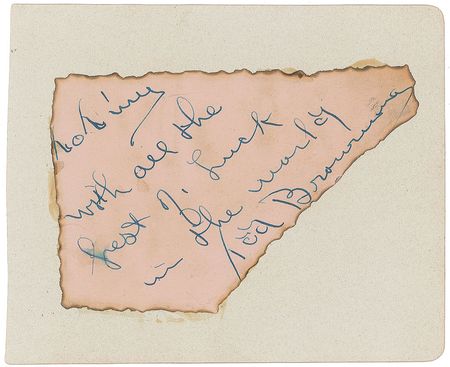 to
with all the
best of Luck
in the world
Tod Browning